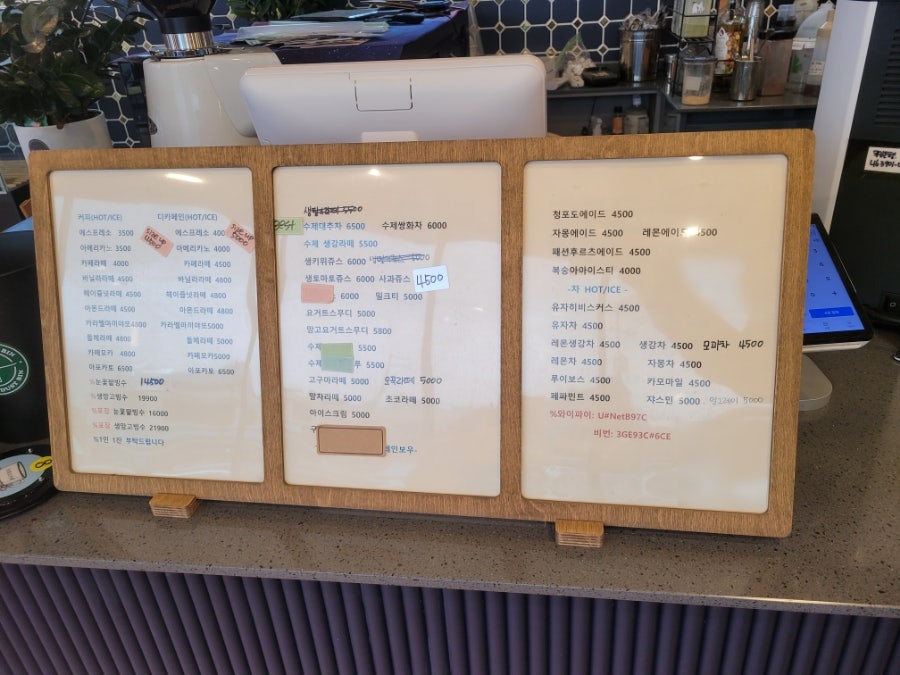 커피(HOT/ICE) 디카페인(HOT/ICE)
에스프레소 3500 에스프레소 400
SIZE UP
SIZE UP 5000
아메리카노 3500 아메리카노 4000
카페라떼 4000 카페라떼 4500
바닐라라떼 4500 바닐라라떼 4800
헤이즐넛라떼 4500 헤이즐넛라떼 4800
아몬드라떼 4500 아몬드라떼 4800
카라멜마끼야또4800 카라멜마끼야또5000
돌체라떼 4800 돌체라떼 5000
카페모카 4800 카페모카5000
아포카토 6500 아포카토 6500
%눈꽃팥빙수 14500
%생망고빙수 19900
%포장 눈꽃팥빙수 16000
%포장 생망고빙수 21900
%1인 1잔 부탁드립니다
BEST 수제대추차 6500 수제쌍화차 6000
수제 생강라떼 5500
생키위쥬스 6000
생토마토쥬스 6000 사과쥬스 4500
6000 밀크티 5000
요거트스무디 5000
망고요거트스무디 5800
수제 5500
수제 루 5500
고구마라떼 5000 오곡라떼 5000
말차라떼 5000 초코라떼 5000
아이스크림 5000
인보우-
청포도에이드 4500
자몽에이드 4500 레몬에이드 4500
패션후르츠에이드 4500
복숭아아이스티 4000
-차 HOT/ICE -
유자히비스커스 4500
유자차 4500
레몬생강차 4500 생강차 4500 모과차 4500
레몬차 4500 자몽차 4500
루이보스 4500 카모마일 4500
페파민트 4500 쟈스민 5000 얼그레이 5000
%와이파이: U#NetB97C
비번: 3GE93C#6CE